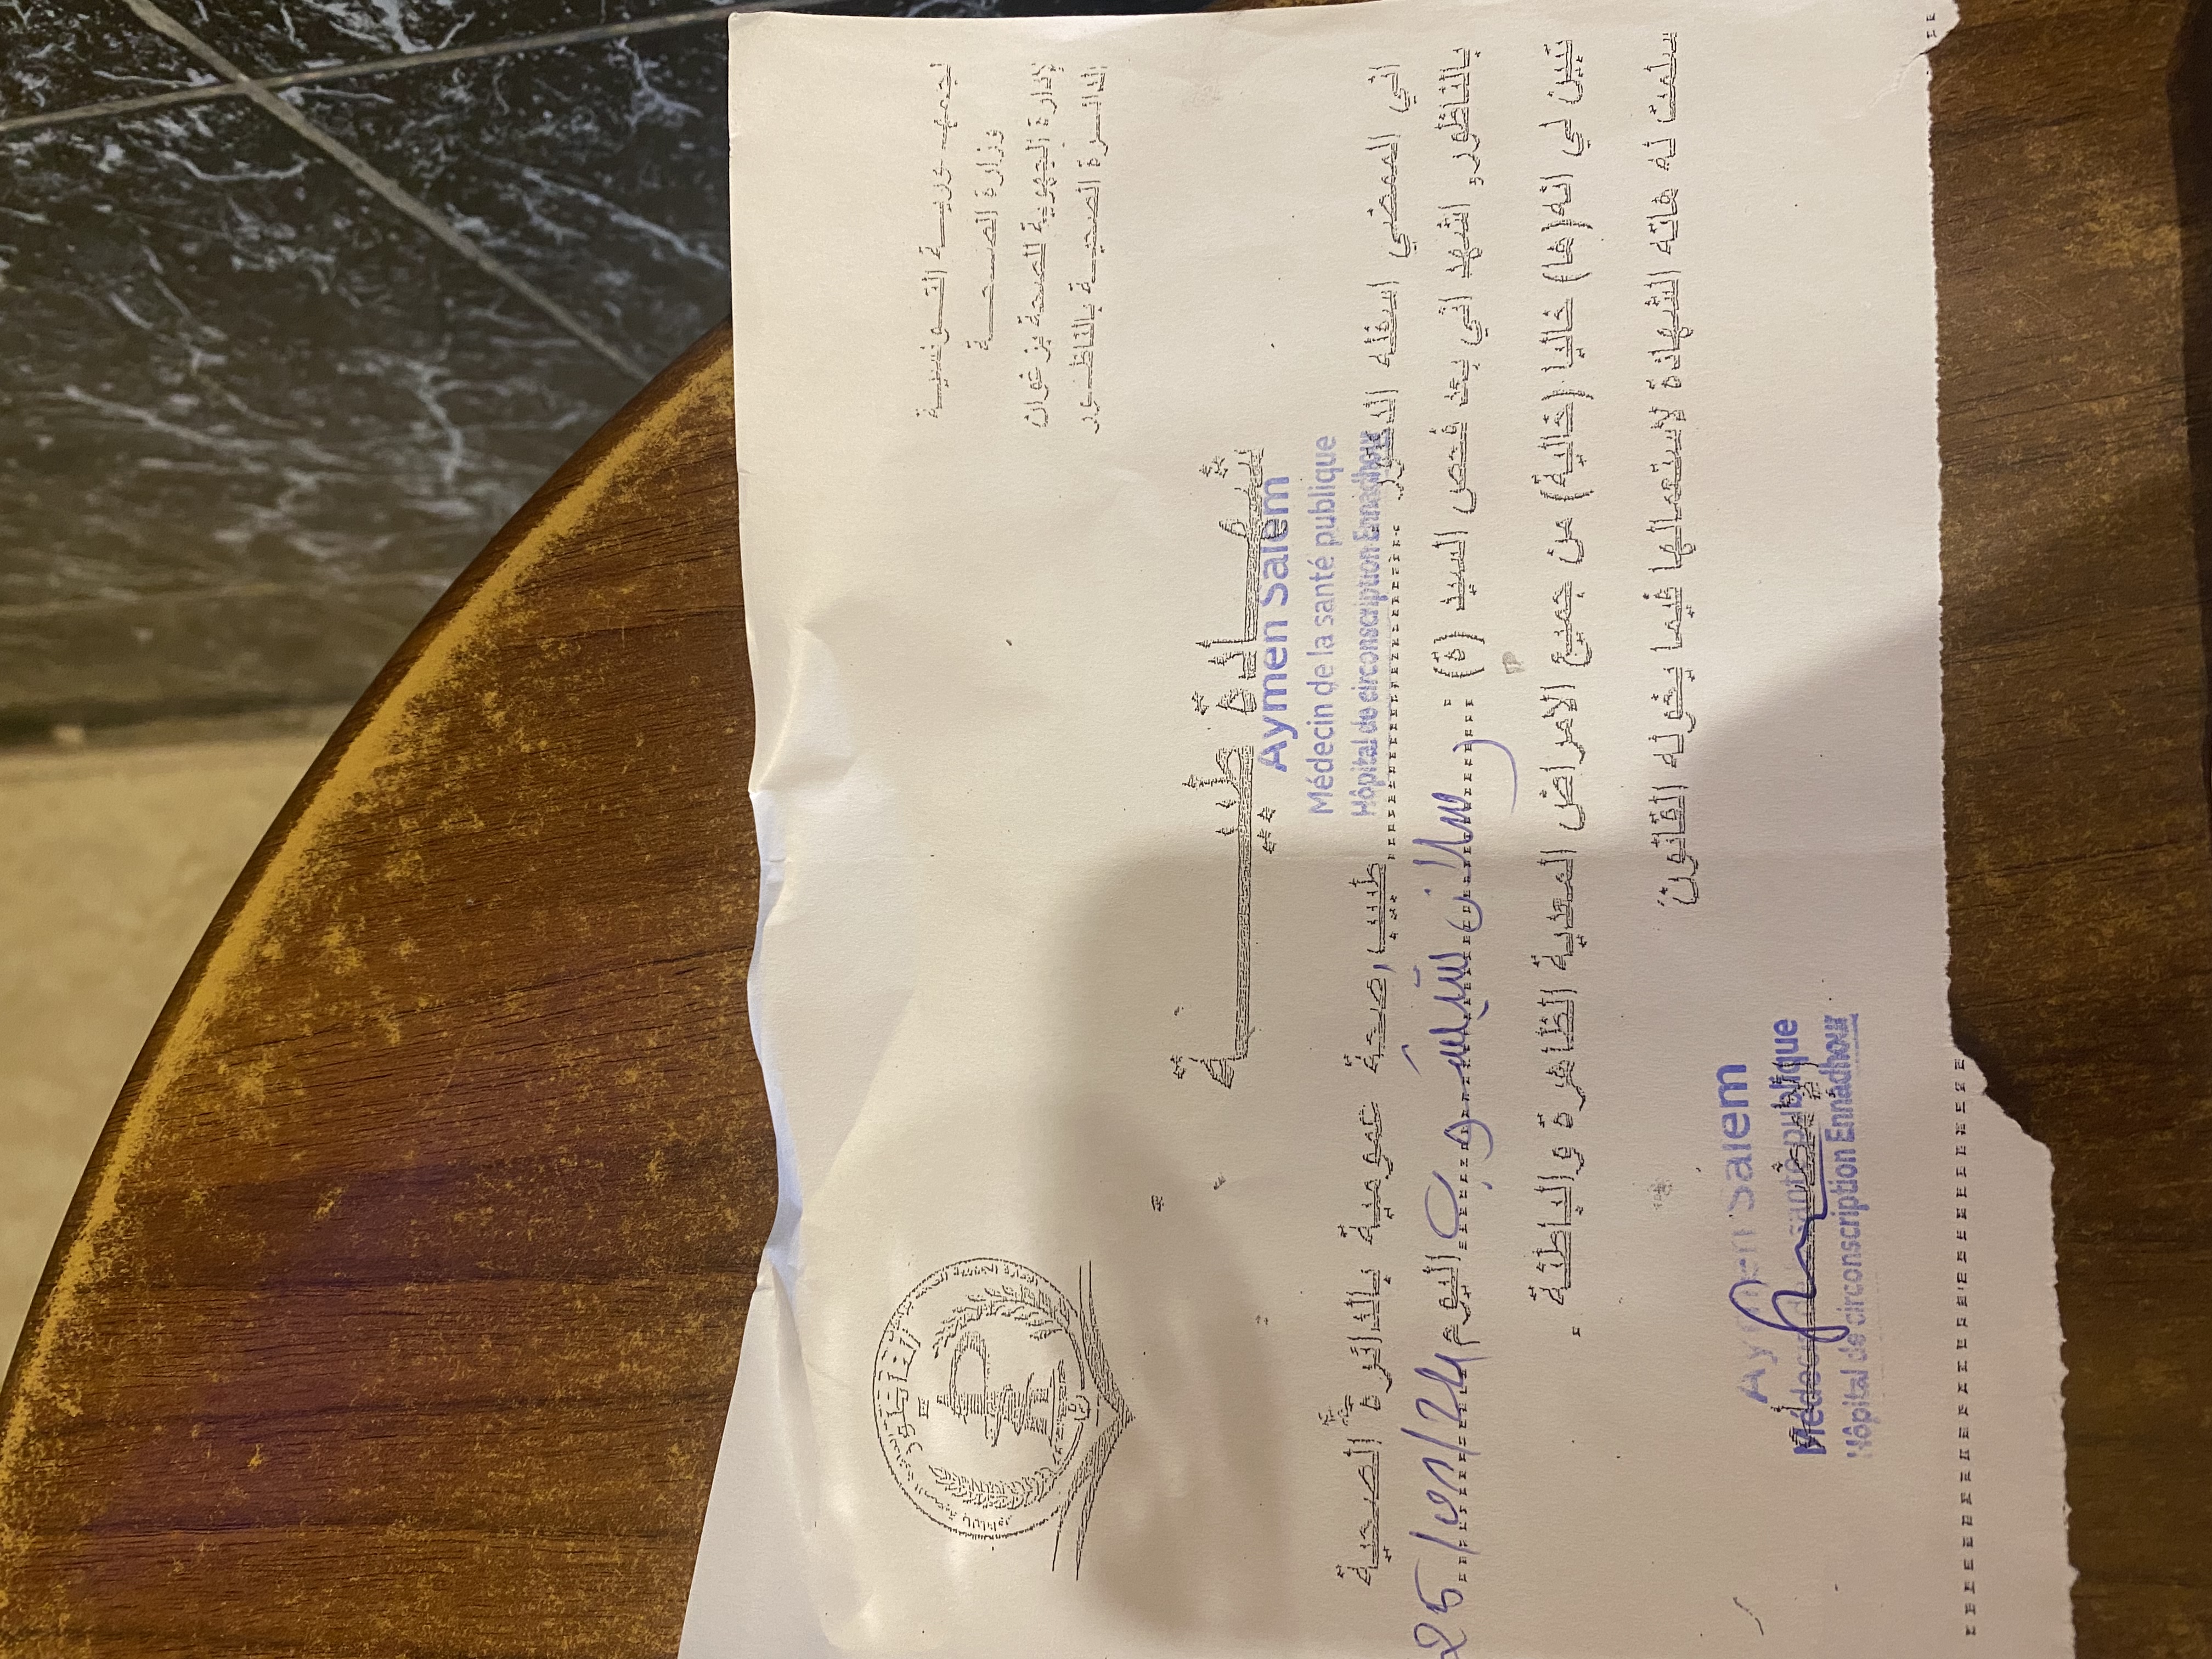 الجمهورية التونسية
وزارة الصحة
الإدارة الجهوية للصحة بزغوان
الدائرة الصحية بالناظور
شهادة طبية
Aymen Salem
Médecin de la santé publique
Hôpital de circonscription Ennadhour
اني الممضي اسفله الدكتور طبيب صحة عمومية بالدائرة الصحية
بالناظور و اشهد اني بعد فحص السيد (ة) : اليوم 24
تبين لي انه (ها) خاليا (خالية) من جميع الامراض المعدية الظاهرة و الباطنية .
سلمت له هاته الشهادة لاستعمالها فيما يخوله القانون
Aymen Salem
Médecin de la santé publique
Hôpital de circonscription Ennadhour